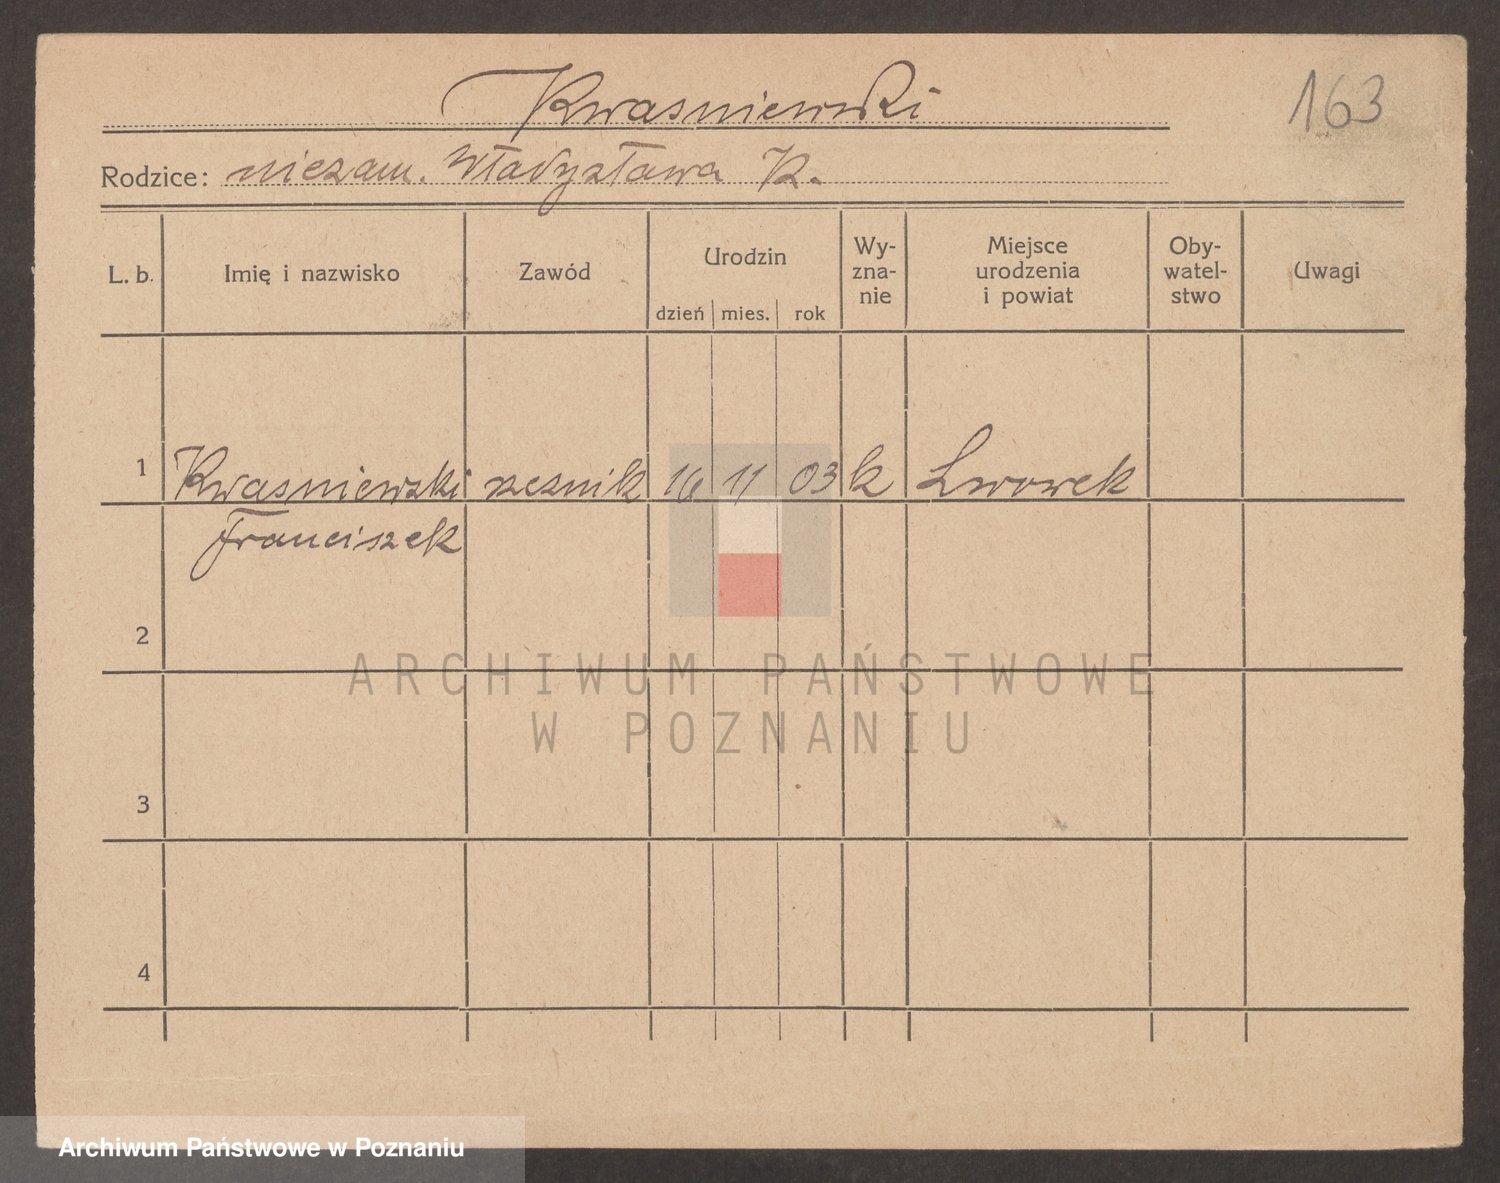 Kwasniewski
163
Rodzice: niezam. Władysława K.
L. b.
Imię i nazwisko
Zawód
Urodzin
dzień mies. rok
Wy-
zna-
nie
Miejsce
urodzenia
i powiat
Oby-
watel-
stwo
Uwagi
1 Kwasniewski rzeznik 16 11 03 k Lwowek
Franciszek
2
3
4
ARCHIWUM PAŃSTWOWE
W POZNANIU
Archiwum Państwowe w Poznaniu